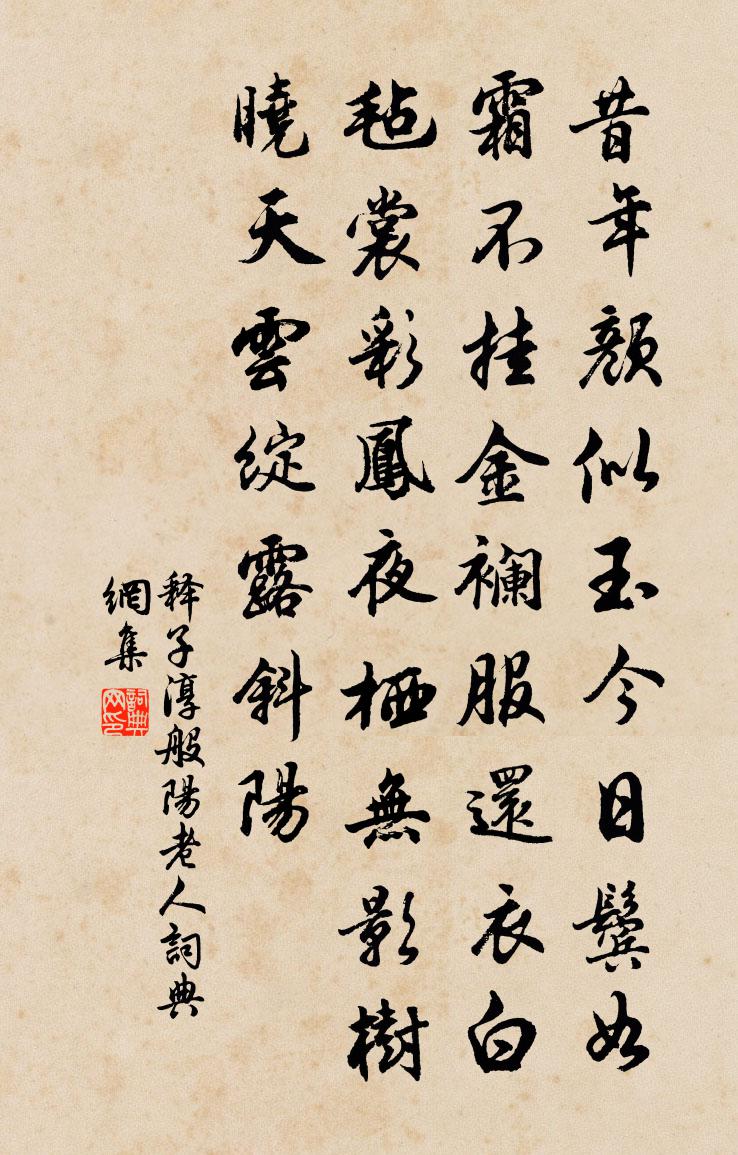 昔年顏似玉今日鬢如
霜不挂金襴服還衣白
毡裳彩鳳夜栖無影樹
曉天雲綻露斜陽
释子淳般陽老人詞典
網集
詞典網印